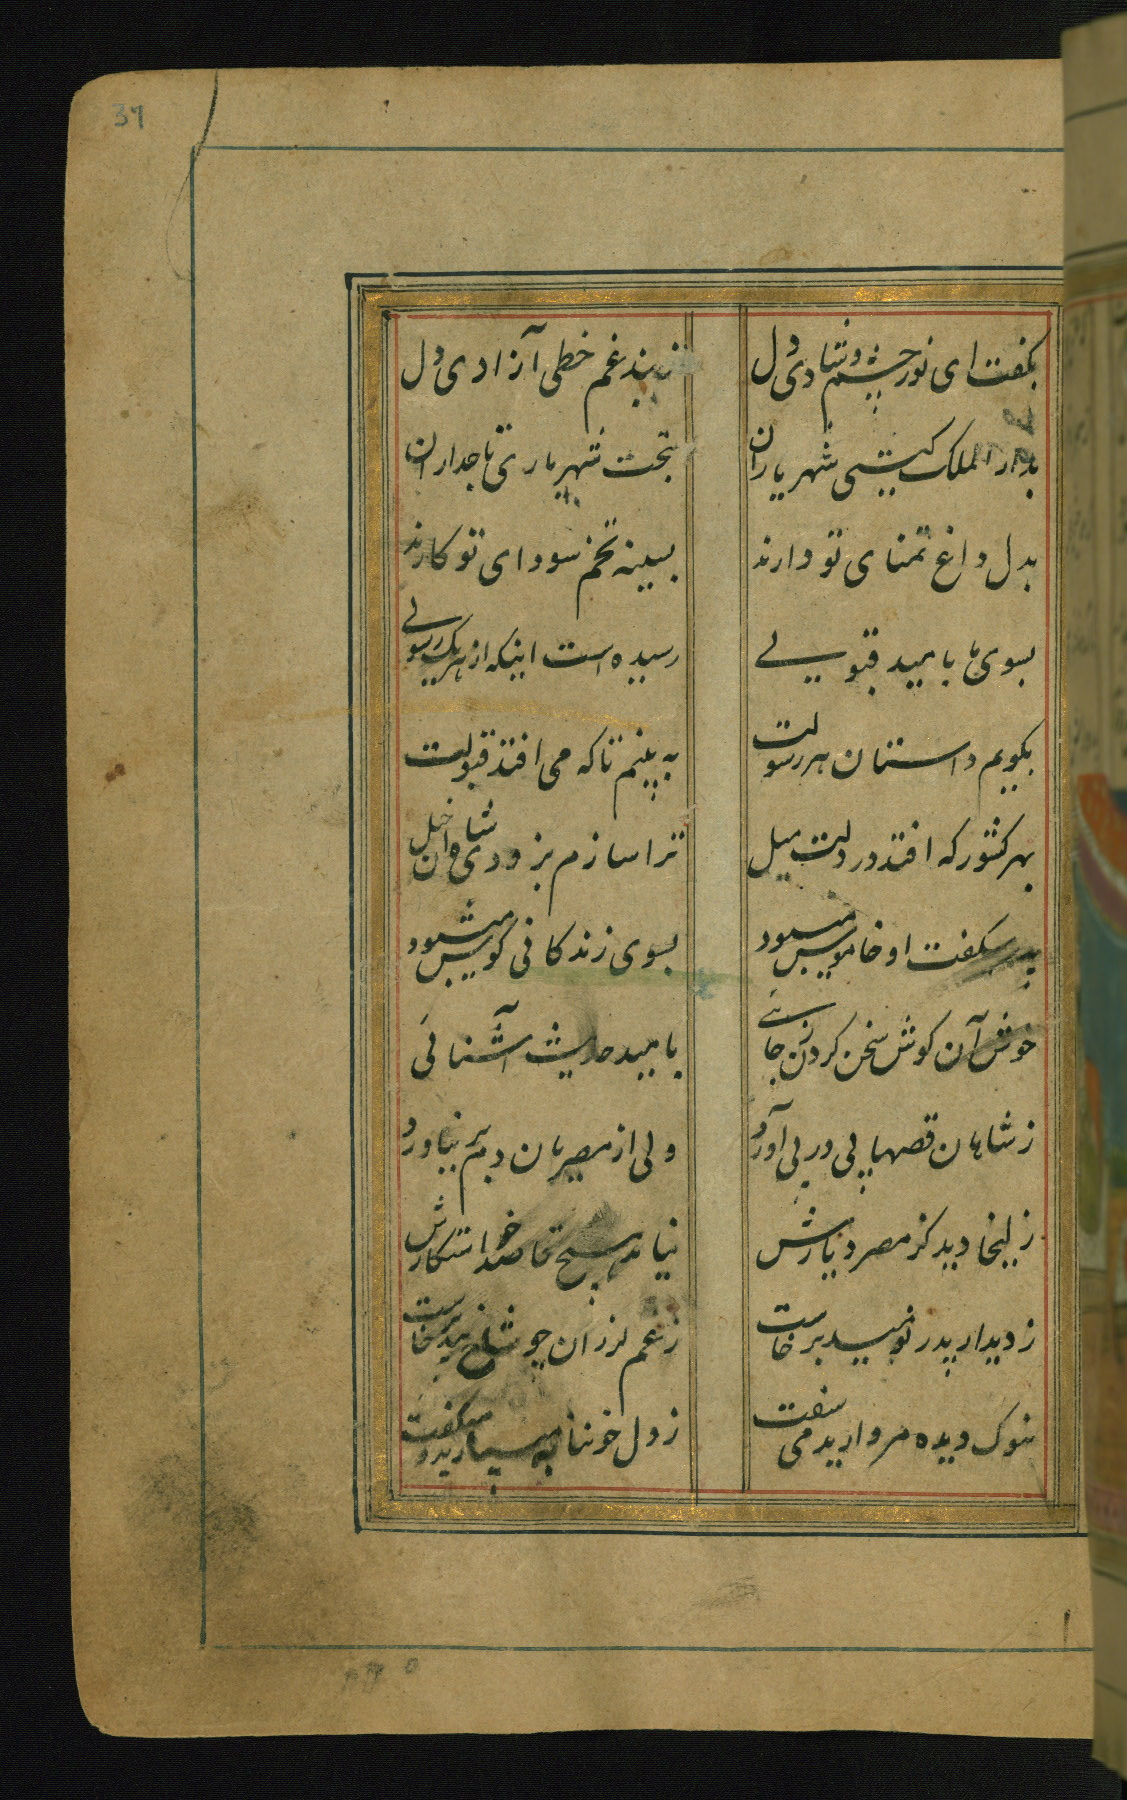 37
بکفت ای نور چشم و شادی دل ز بند غم خطی آزادی دل
بدار الملک کیتی شهریاران بتخت شهریاری تاجداران
بدل داغ تمنای تو دارند بسینه تخم سودای تو کارند
بسوی ما بامید قبولی رسیده است اینکه از هر یک رسولی
بکویم داستان هر رسولت به بینم تا که می افتد قبولت
بهر کشور که افتد در دلت میل ترا سازم بزودی شاه آن خیل
پدر میکفت او خاموش میبود بسوی زندکانی کوش میبود
خوش آن کوش سخن کردن ز جائی بامید حدیث آشنائی
ز شاهان قصها پی در پی آورد ولی از مصریان دم بر نیاورد
زلیخا دید کز مصر و دیارش نیامد هیچ قاصد خواستکارش
ز دیدار پدر نومید برخاست ز غم لرزان چو شاخ بید برخاست
بنوک دیده مروارید می سفت ز دل خونابه میبارید و میکفت